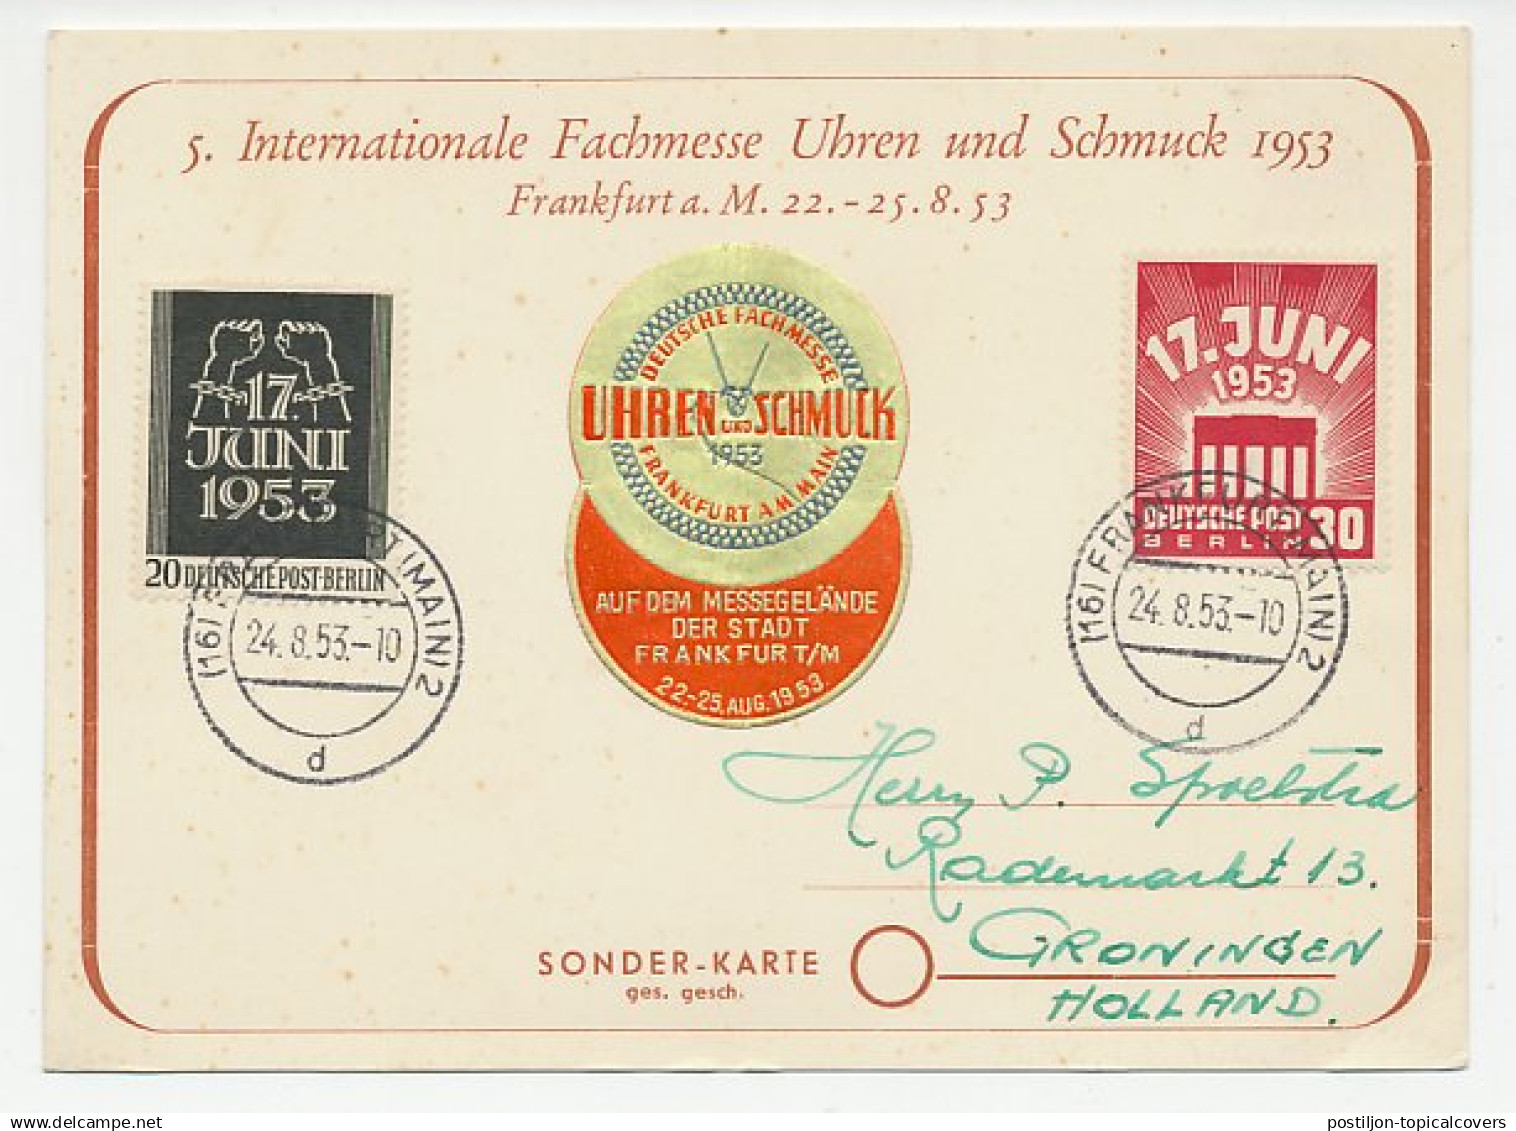 5. Internationale Fachmesse Uhren und Schmuck 1953
Frankfurt a. M. 22.-25.8.53
17.
JUNI
1953
20 DEUTSCHE POST·BERLIN
(MAIN) 2
24.8.53.-10
d
DEUTSCHE FACHMESSE
UHREN UND SCHMUCK
1953
FRANKFURT AM MAIN
AUF DEM MESSEGELÄNDE
DER STADT
FRANKFURT/M
22.-25. AUG. 1953.
17. JUNI
1953
DEUTSCHE POST 30
BERLIN
(16) FRANKFURT (MAIN) 2
24.8.53.-10
d
Herrn P. Spoelstra
Rademarkt 13.
GRONINGEN
HOLLAND.
SONDER-KARTE
ges. gesch.
postiljon-topicalcovers